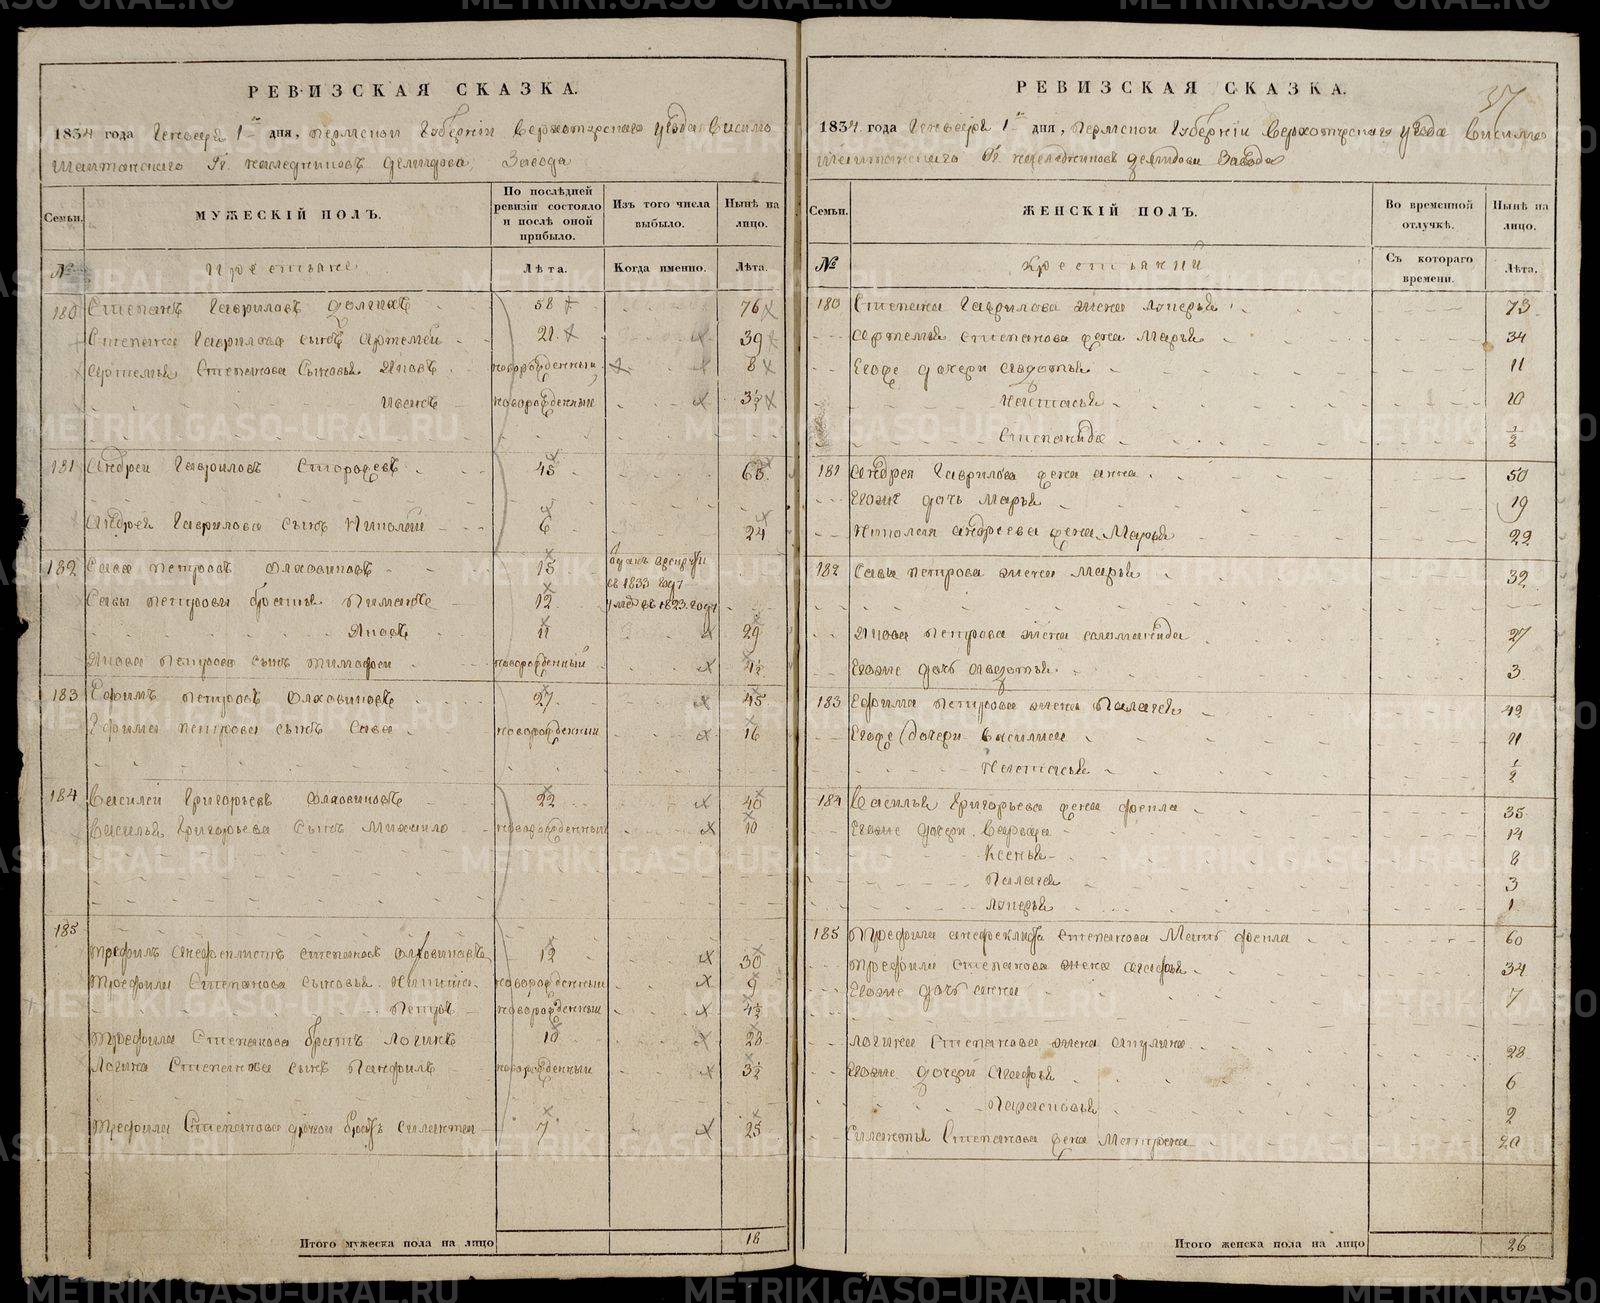 РЕВИЗСКАЯ СКАЗКА.
1834 года Генваря 1 дня, Пермской Губерніи Верхотурскаго уезда Висимо
Шайтанскаго Гг. наследниковъ Демидова Завода
Семьи.
МУЖЕСКІЙ ПОЛЪ.
По послѣдней ревизіи состояло и послѣ оной прибыло.
Изъ того числа выбыло.
Нынѣ на лицо.
№
Крестьяне
Лѣта.
Когда именно.
Лѣта.
180 Степанъ Гавриловъ 58 76
Степана Гаврилова сынъ Артемей 21 39
Артемья Степанова Сыновья Яковъ новорожденный 8
Иванъ новорожденный 3½
181 Андрей Гавриловъ 45 63
Андрея Гаврилова сынъ Николай 6 24
182 Сава Петровъ 15 въ 1833 году
Савы Петрова братья Пиманъ 12 умре въ 1823 году
Яковъ 11 29
Якова Петрова сынъ Тимофей новорожденный 4½
183 Ефимъ Петровъ 27 45
Ефима Петрова сынъ Сава новорожденный 16
184 Василей Григорьевъ 22 40
Василья Григорьева Сынъ Михайло новорожденный 10
185
Трефилъ Степановъ 12 30
Трефила Степанова Сыновья Никита новорожденный 9
Петръ новорожденный 4½
Трефила Степанова братъ Логинъ 10 28
Логина Степанова сынъ Панфилъ новорожденный 3½
Трефила Степанова братъ Силантей 7 25
Итого мужеска пола на лицо 18
37
РЕВИЗСКАЯ СКАЗКА.
1834 года Генваря 1 дня, Пермской Губерніи Верхотурскаго уезда Висимо
Шайтанскаго Гг. наследниковъ Демидова Завода
Семьи.
ЖЕНСКІЙ ПОЛЪ.
Во временной отлучкѣ.
Нынѣ на лицо.
№
Крестьянки
Съ котораго времени.
Лѣта.
180 Степана Гаврилова жена Лукерья 73
Артемья Степанова жена Марья 34
Егоже дочери Авдотья 11
Настасья 10
Степанида ½
181 Андрея Гаврилова жена Анна 50
Егоже дочь Марья 19
Николая Андреева жена Марья 22
182 Савы Петрова жена Марья 32
Якова Петрова жена Саламанида 27
Егоже дочь Авдотья 3
183 Ефима Петрова жена Палагея 42
Егоже дочери Василиса 11
Настасья ½
184 Василья Григорьева жена Фекла 35
Егоже дочери Варвара 14
Ксенья 8
Палагея 3
Лукерья 1
185 Трефила Степанова Мать Фекла 60
Трефила Степанова жена Агафья 34
Егоже дочь Анна 7
Логина Степанова жена Акулина 28
Егоже дочери Агафья 6
Парасковья 2
Силантья Степанова жена Матрена 20
Итого женска пола на лицо 26
METRIKI.GASO-URAL.RU